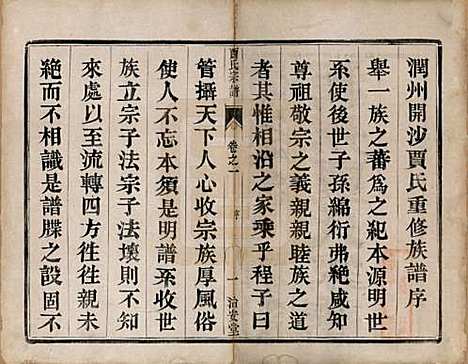 潤州開沙賈氏重修族譜序
舉一族之蕃為之紀本源明世
系使後世子孫綿衍弗絶咸知
尊祖敬宗之義親親睦族之道
者其惟相沿之家乘乎程子曰
賈氏宗譜
卷之一
序
一
治安堂
管攝天下人心收宗族厚風俗
使人不忘本須是明譜系收世
族立宗子法宗子法壞則人不知
來處以至流轉四方徃徃親未
絶而不相識是譜牒之設固不